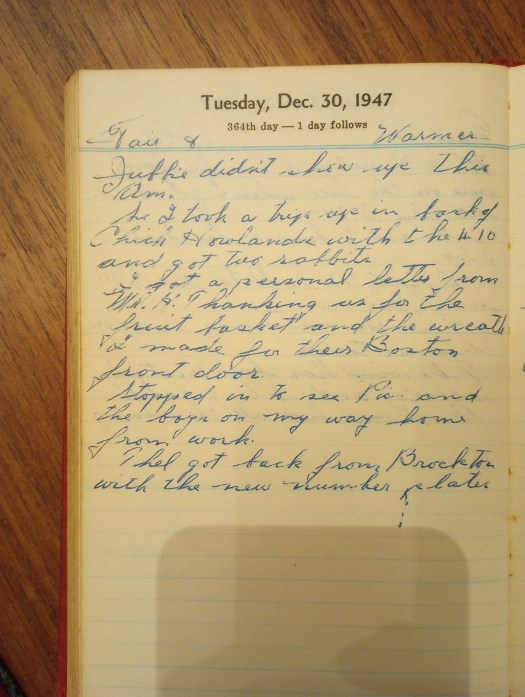 Tuesday, Dec. 30, 1947
364th day — 1 day follows
Fair & Warmer
didn't show up this
A.m.
So I took a trip up in back of
"Chick" Howlands with the 410
and got two rabbits
I got a personal letter from
Mr. H. Thanking us for the
fruit basket and the wreath
I made for their Boston
front door.
Stopped in to see Pic. and
the boys on my way home
from work.
Thel got back from Brockton
with the new number plates